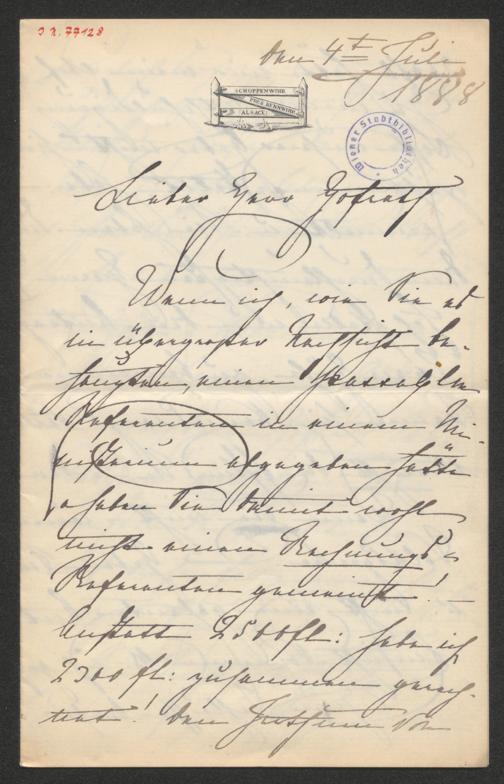 I.N. 77128
den 4t Juli
1888
SCHOPPENWIHR
PRÈS BENNWIHR
ALSACE
Wiener Stadtbibliothek
Lieber Herr Hofrath
Wenn ich, wie Sie es
in übergroßer Nachsicht be-
haupten, einen passablen
Referenten in einem Mi-
nisterium abgegeben hätte
so haben Sie damit wohl
nicht einen Rechnungs-
Referenten gemeint! –
Anstatt 2500 fl: habe ich
2300 fl: zusammen gerech-
net! den Irrthum von